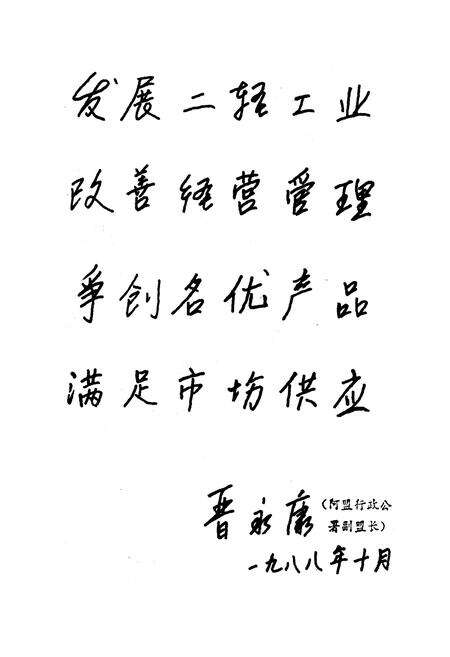 发展二轻工业
改善经营管理
争创名优产品
满足市场供应
晋永康
(阿盟行政公
署副盟长)
一九八八年十月